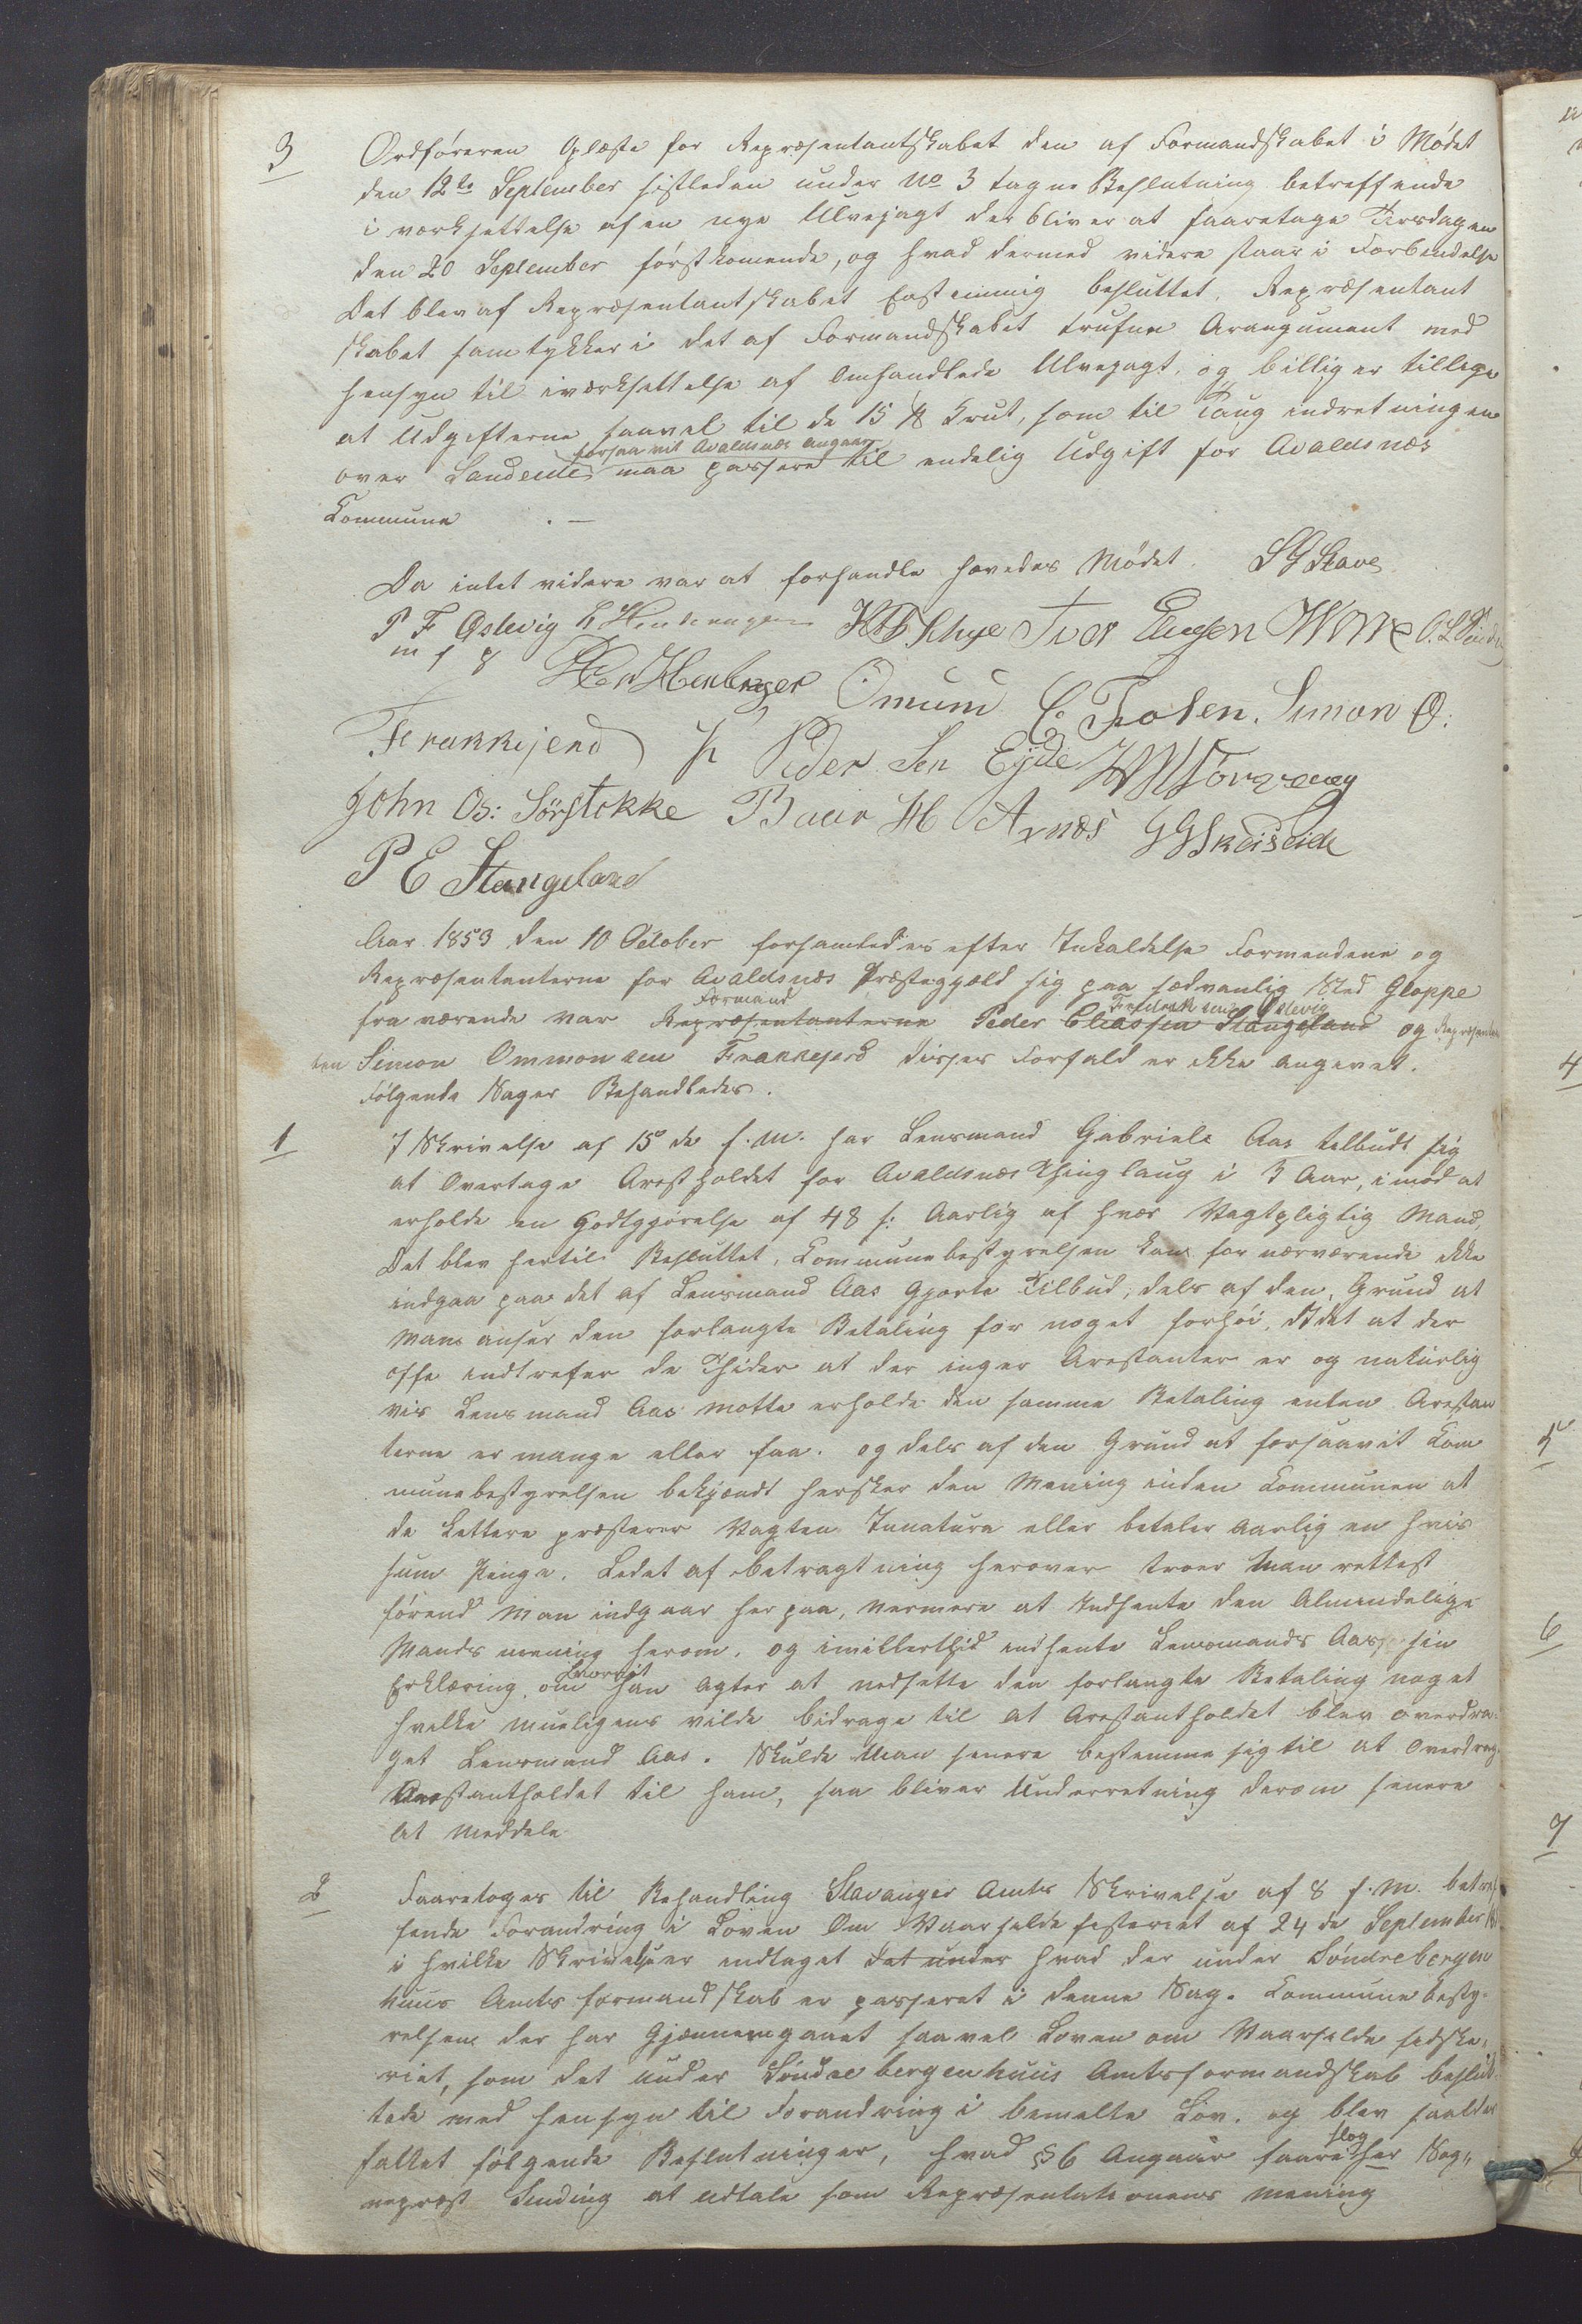 3 Ordføreren Oplæste for Repræsentantskabet den af Formandskabet i Mødet
den 12te September sistleden under No 3 tagne Beslutning betreffende
i værksettelse af en nye Ulvejagt der bliver at faaretage Tirsdagen
den 20 September førstkomende, og hvad dermed videre staar i Forbindelse
Det blev af Repræsentantskabet Enstemmig besluttet. Repræsentant
skabet samtykker i det af Formandskabet trufne Arangument med
hensyn til iværksettelse af Omhandlede Ulvejagt, og billiger tillige
at Udgifterne saavel til de 15 ℔ Krut, som til Taug indretningen
forsaa vit Avaldsnæs angaar
over Landeule maa passere til endelig Udgift for Avaldsnæs
Commune . —
Da intet videre var at forhandle hævedes Mødet. S G Stave
P F Oslevig Iver Wme
m f P Omund C. Fosen. Simon O:
Frakkejend Peder Sen Eyde
John Os: Sørstokke Baar H Arnæs G G Skeiseide
P E Stangeland
Aar 1853 den 10 October forsamledes efter Inkaldelse Formendene og
Repræsentanterne for Avaldsnæs Præstegjæld sig paa sædvanlig Sted Gloppe
Formand Fredriksen Oslevig
fraværende var Repræsentanterne Peder Eliassen Stangeland og Repræsentan
ten Simon Ommonsen Frakkejord disses Forfald er ikke angivet.
Følgende Sager Behandledes.
1 I Skrivelse af 15de f. M. har Lensmand Gabriele Aas tilbudt sig
at Overtage Arestholdet for Avaldsnæs Thinglaug i 3 Aar, imod at
erholde en Godtgjørelse af 48 s: Aarlig af hver Vagtpligtig Mand,
Det blev hertil Besluttet, Communebestyrelsen kan for nærværende ikke
indgaa paa det af Lensmand Aas Gjorte Tilbud, dels af den Grund at
Man anser den forlangte Betaling for noget forhøi, Idet at der
ofte indtrefer de Thider at der inger Arestanter er og naturlig
vis Lensmand Aas motte erholde den samme Betaling enten Arestan
terne er mange eller faa. og dels af den Grund at forsaavit Com
munebestyrelsen bekjendt hersker den Mening inden Communen at
de Lettere præsterer Vagten Innatura eller betaler Aarlig en hvis
sum Penge. Ledet af betragtning herover troer Man rettest
førend Man indgaar her paa, nermere at Indhente den Almindelige
Mands mening herom. og imillerthid indhente Lensmands Aas sin
hvorvit
Erklæring, om han agter at nedsette den forlangte Betaling noget
hvilke mueligens vilde bidrage til at Arestantholdet blev overdra=
get Lensmand Aas. Skulde Man senere bestemme sig til at Overdrag
Arestantholdet til ham, saa bliver Underretning derom senere
at Meddele
2 Faaretoges til Behandling Stavanger Amts Skrivelse af 8 f. M. betref
fende Forandring i Loven Om Vaarsildefiskeriet af 24de September
i hvilke Skrivelse er indtaget det under hvad der under Søndrebergen
huus Amts formandskab er passeret i denne Sag. Communebesty=
relsen der har Gjennemgaaet saavel Loven om Vaarsilde fiske=
riet, som det under Søndrebergenhuus Amtsformandskab beslut
tede med hensyn til Forandring i bemelte Lov. og blev saaledes
slog
fattet følgende Beslutninger, hvad § 6 Angaar faare her Sog„
nepræst Sinding at udtale som Repræsentationens mening